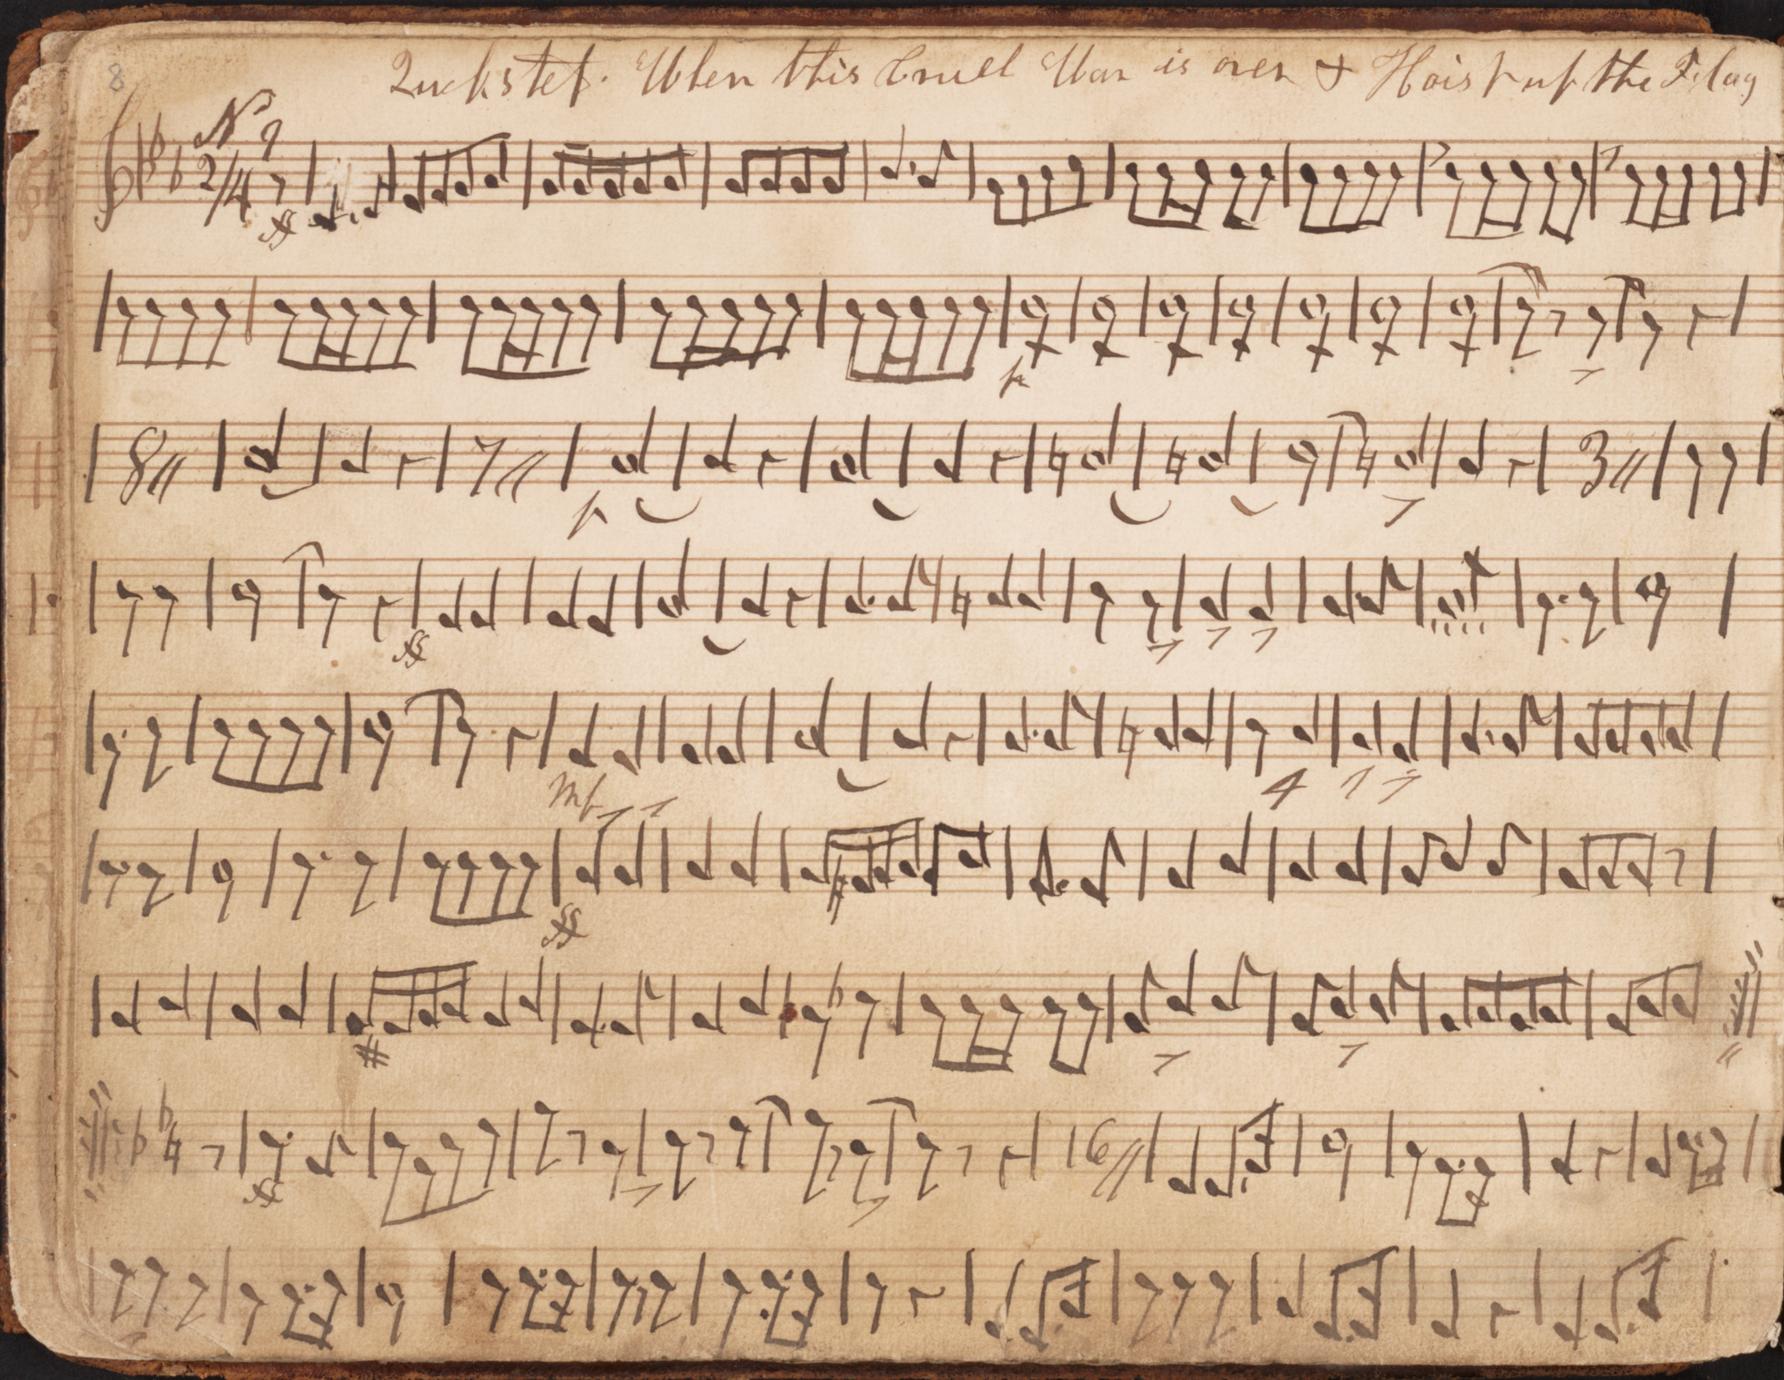 8
Quickstep. When this Cruel War is over & Hoist up the Flag
No 9
2/4
ff
p
8 7 p 3
ff
mf
ff
#
ff 16